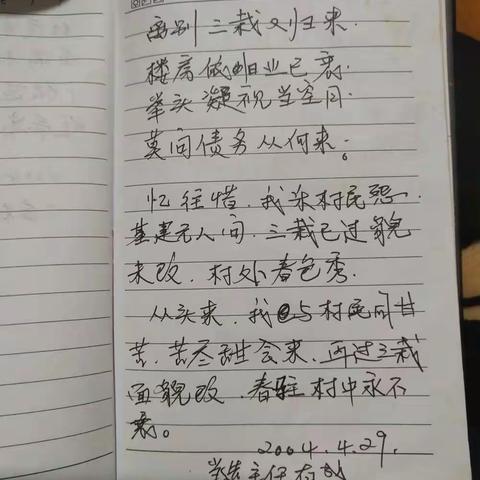 离别三载又归来.
楼房依旧业已衰.
举头凝视当空月.
莫问债务从何来。
忆往惜.我来村民怨.
基建无人问.三载已过貌
未改.村外春色秀.
从头来.我与村民同甘
苦.苦尽甜会来.再过三载
面貌改.春驻村中永不
衰。
2004.4.29.
主任有